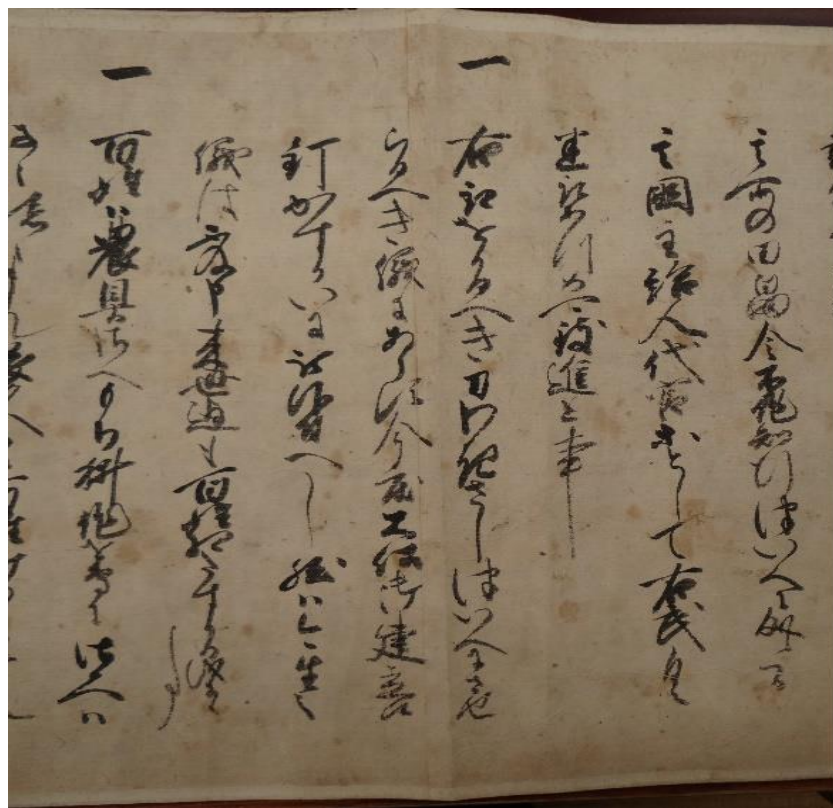 其所の田畠令不作知行ついへに成候間
其国主給人代官等として右武具
悉取あつめ可致進上事
一 右取をかるへき刀わきさしついへにさせ
らるへき儀にあらす今度大仏御建立候
釘かすかいに被仰付へし然ハ今生之
儀は不及申来世迄も百姓相たすかる儀に候事
一 百姓ハ農具さへもち耕作専に仕候へハ